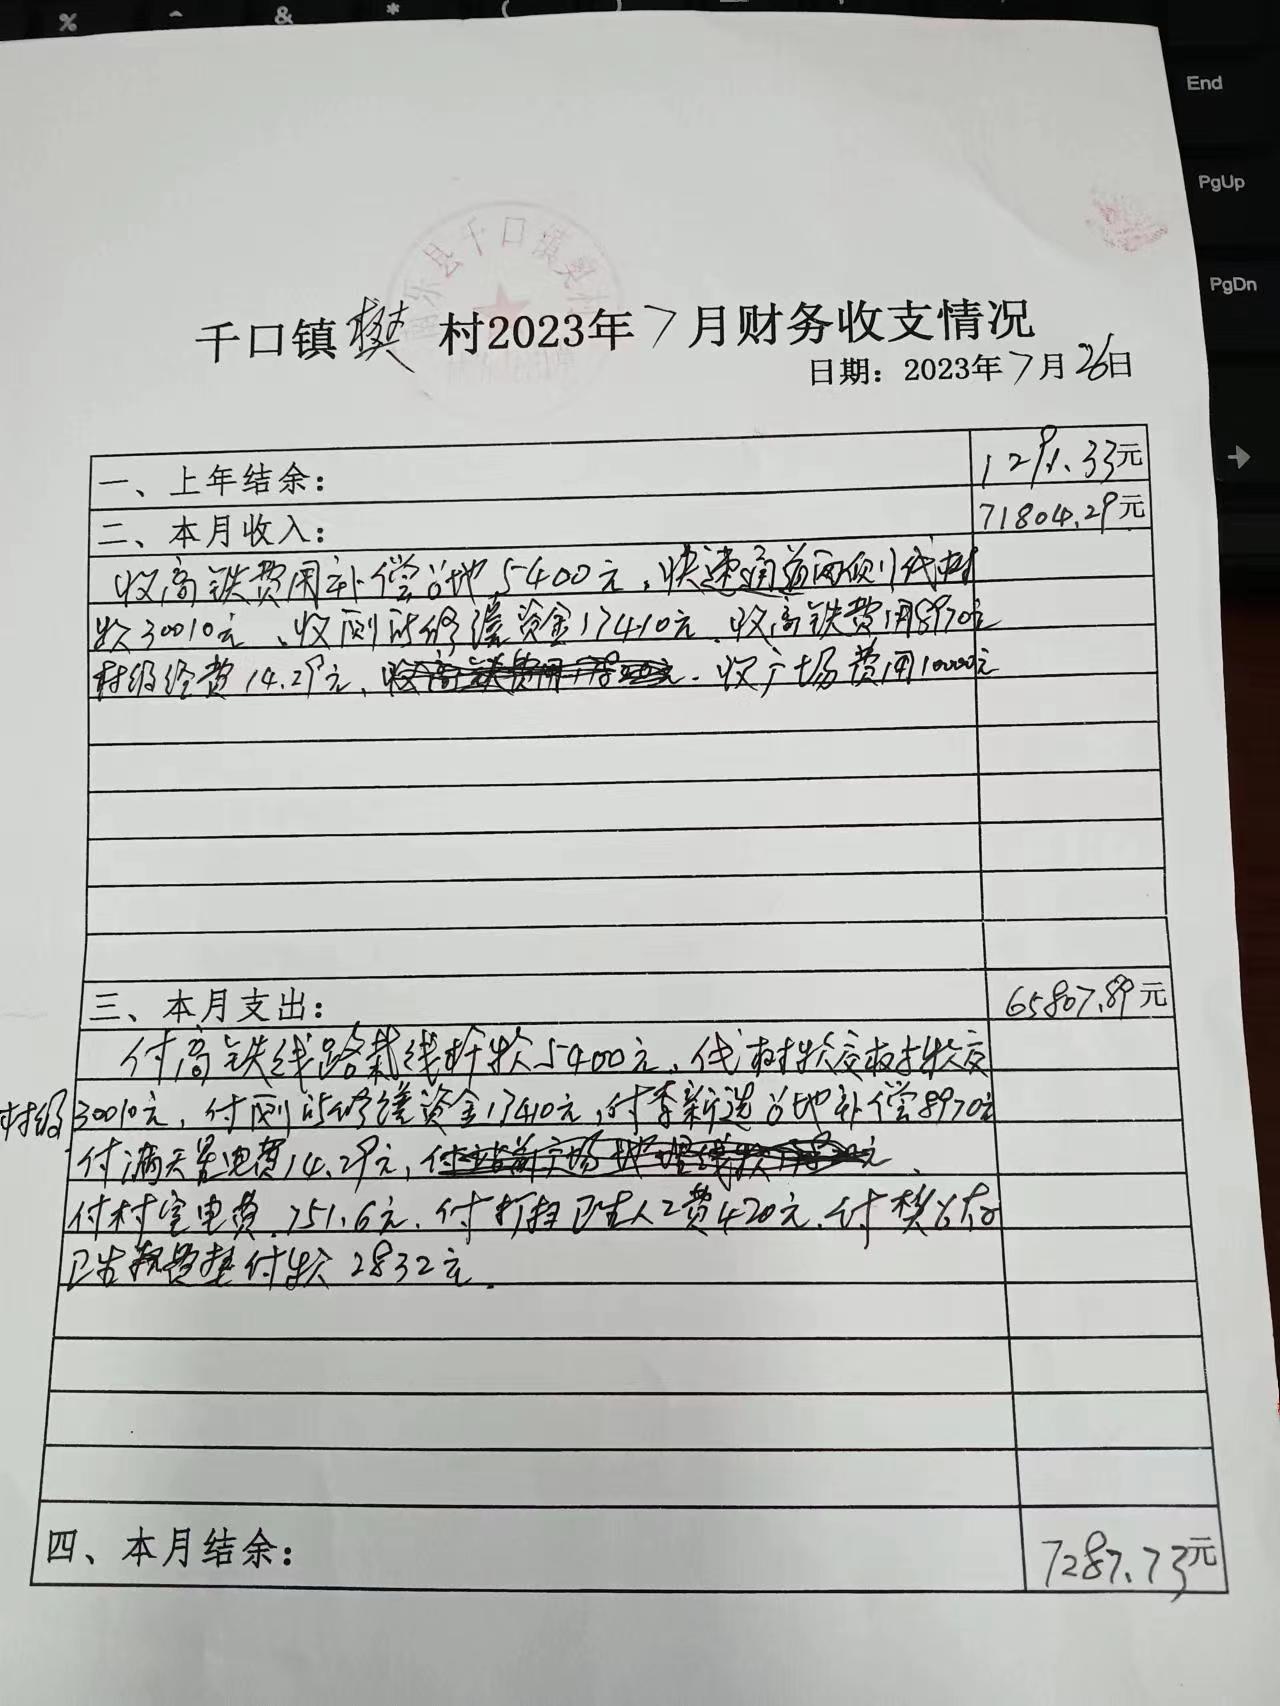 %
&
*
(
)
End
PgUp
PgDn
南乐县千口镇樊村
千口镇樊村2023年7月财务收支情况
日期：2023年7月26日
一、上年结余： 1291.33元
二、本月收入： 71804.29元
收高铁费用补偿占地5400元、快速通道两侧伐树
款30010元、收厕所修缮资金17410元、收高铁费用8970元
村级经费14.29元、收广场费用10000元
三、本月支出： 65807.89元
付高铁线路栽线杆款5400元、伐树款交
村级30010元，付厕所修缮资金17410元，付李新选占地补偿8970元
付满天星电费14.29元，
付村室电费751.6元、付打扫卫生人工费420元、付樊
卫生垫付款2832元
四、本月结余： 7287.73元